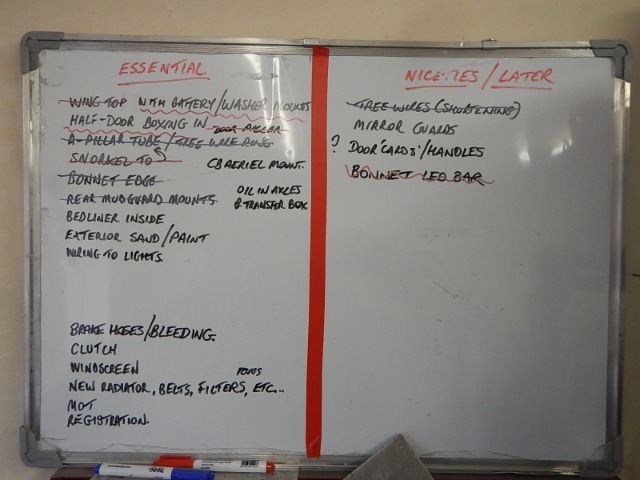 ESSENTIAL
WING TOP WITH BATTERY/WASHER MOUNTS
HALF-DOOR BOXING IN DOOR PILLAR
A-PILLAR TUBE/TREE WIRE RING
SNORKEL TO
CB AERIEL MOUNT.
BONNET EDGE
REAR MUDGUARD MOUNTS
OIL IN AXLES
& TRANSFER BOX
BEDLINER INSIDE
EXTERIOR SAND/PAINT
WIRING TO LIGHTS.
BRAKE HOSES/BLEEDING.
CLUTCH
WINDSCREEN
NEW RADIATOR, BELTS, FILTERS, ETC..
MOT
REGISTRATION.
NICETIES/LATER
TREE WIRES (SHORTENING)
MIRROR GUARDS
? DOOR 'CARDS'/HANDLES
BONNET LED BAR